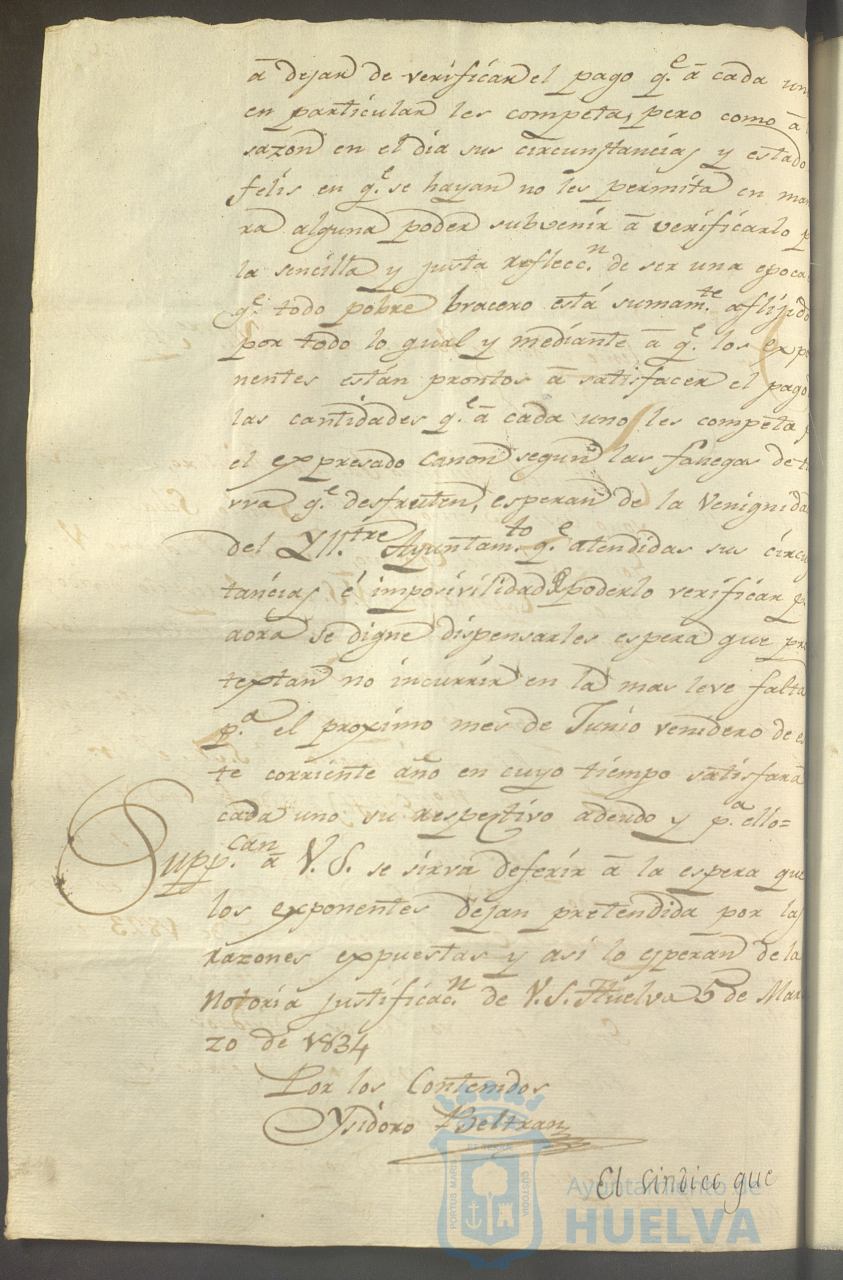 â dejar de verificar el pago q.e â cada un
en particular les competa, pero como â
sazon en el dia sus circunstancias y estado
felis en q.e se hayan no les permita en man
ra alguna poder subvenir â verificarlo p
la sencilla y justa reflecc.n de ser una epoca
q.e todo pobre bracero está sumam.te aflijido
por todo lo qual y mediante â q.e los expo
nentes están prontos â satisfacer el pago
las cantidades q.e â cada uno les competa p
el expresado canon segun las fanegas de ti
rra q.e desfruten, esperan de la Venignida
del Yll.tre Ayuntam.to q.e atendidas sus circu
tancias é imposivilidad d poderlo verificar p
aora se digne dispensarles espera que pro
textan no incurrir en la mas leve falta
p.a el proximo mes de Junio venidero de es
te corriente año en cuyo tiempo satisfará
cada uno su respectivo adeudo y p.a ello=
Supp.can â V. S. se sirva deferir â la espera que
los exponentes dejan pretendida por las
razones expuestas y asi lo esperan de la
Notoria justificac.n de V. S. Huelva 5 de Mar
zo de 1834
Por los Contenidos
Ysidoro Beltran
El Sindico que
PORTUS MARIS
ET TERRE
CUSTODIA
Ayuntamiento de
HUELVA